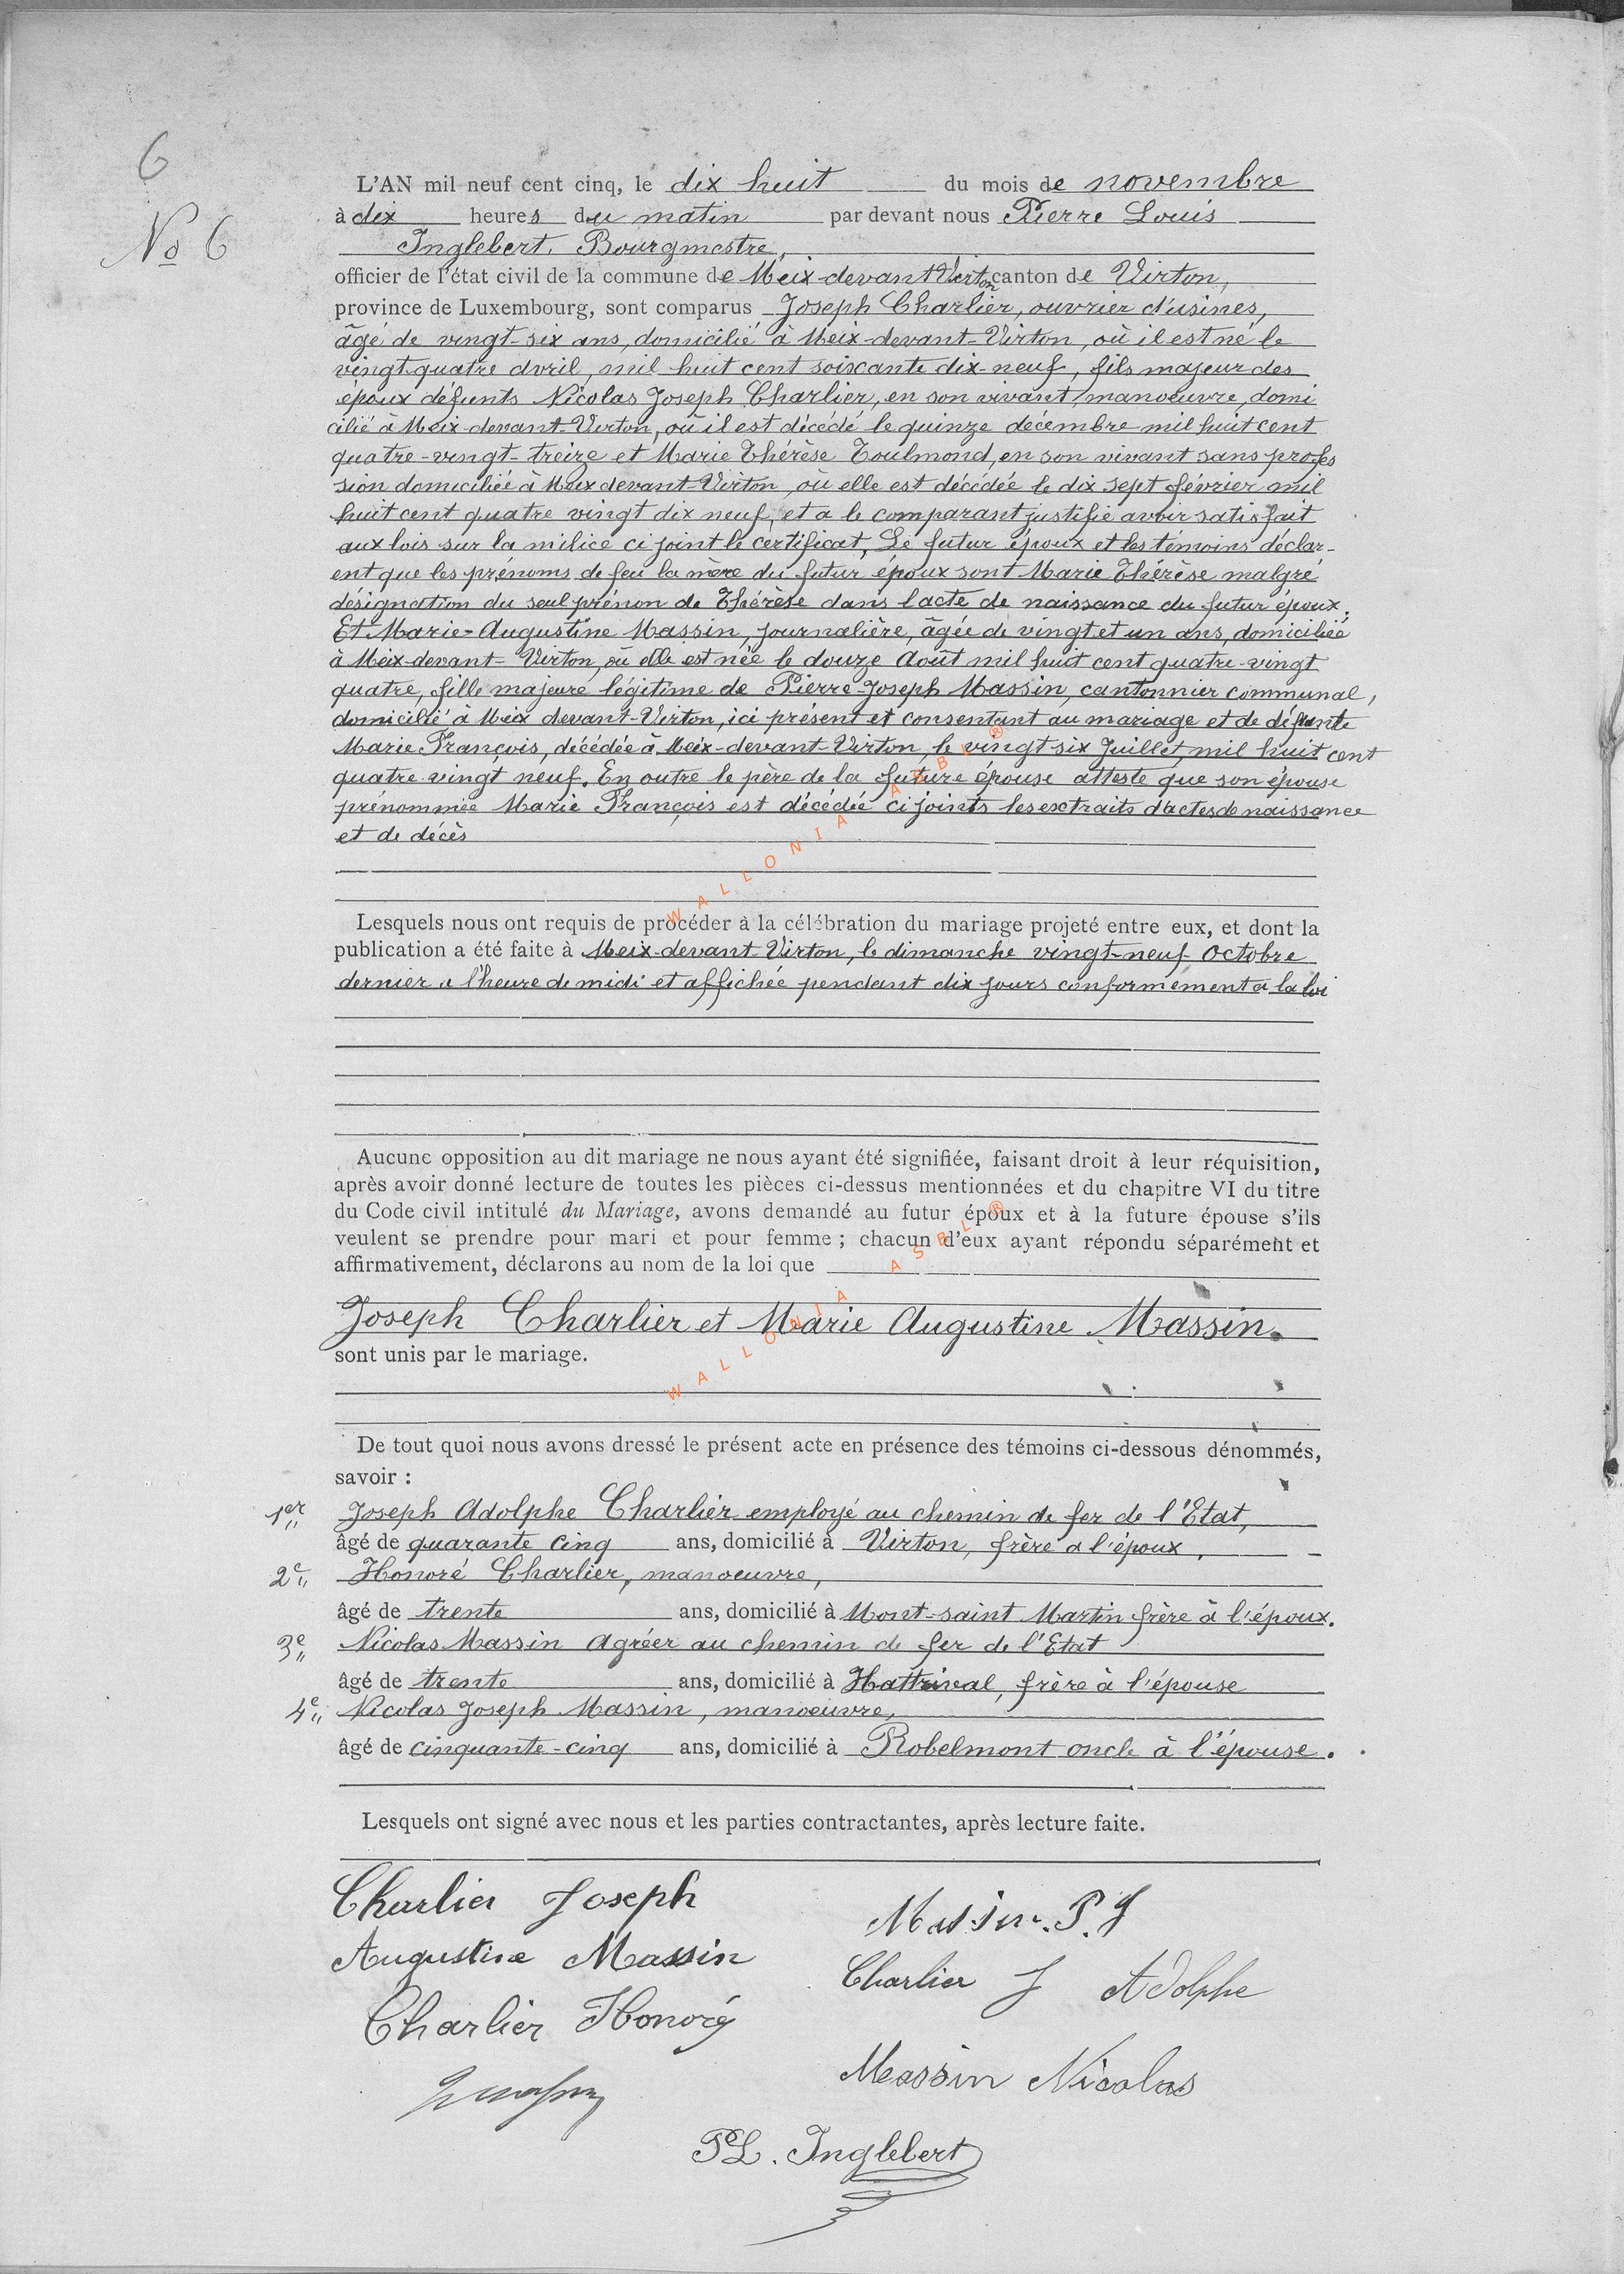 6
No 6
L'AN mil neuf cent cinq, le dix huit du mois de novembre
à dix heures du matin par devant nous Pierre Louis
Inglebert, Bourgmestre,
officier de l'état civil de la commune de Meix-devant-Virton canton de Virton,
province de Luxembourg, sont comparus Joseph Charlier, ouvrier d'usines,
âgé de vingt-six ans, domicilié à Meix-devant-Virton, où il est né le
vingt-quatre avril, mil huit cent soixante dix-neuf, fils majeur des
époux défunts Nicolas Joseph Charlier, en son vivant manoeuvre, domi
cilié à Meix-devant-Virton, où il est décédé le quinze décembre mil huit cent
quatre-vingt-treize et Marie Thérèse Toulmond, en son vivant sans profes
sion domiciliée à Meix devant-Virton, où elle est décédée le dix sept février mil
huit cent quatre vingt dix neuf, et a le comparant justifié avoir satisfait
aux lois sur la milice ci joint le certificat, Le futur époux et les témoins déclar-
ent que les prénoms de feu la mère du futur époux sont Marie Thérèse malgré
désignation du seul prénon de Thérèse dans l'acte de naissance du futur époux.
Et Marie-Augustine Massin, journalière, âgée de vingt et un ans, domiciliée
à Meix-devant-Virton, où elle est née le douze Août mil huit cent quatre-vingt
quatre, fille majeure légitime de Pierre-Joseph Massin, cantonnier communal,
domicilié à Meix devant-Virton, ici présent et consentant au mariage et de défunte
Marie François, décédée à Meix-devant-Virton, le vingt six Juillet, mil huit cent
quatre-vingt neuf. En outre le père de la future épouse atteste que son épouse
prénommée Marie François est décédée ci joints les extraits d'actes de naissance
et de décès
WALLONIA ASBL ®
Lesquels nous ont requis de procéder à la célébration du mariage projeté entre eux, et dont la
publication a été faite à Meix-devant-Virton, le dimanche vingt-neuf Octobre
dernier a l'heure de midi et affichée pendant dix jours conformément à la loi
Aucune opposition au dit mariage ne nous ayant été signifiée, faisant droit à leur réquisition,
après avoir donné lecture de toutes les pièces ci-dessus mentionnées et du chapitre VI du titre
du Code civil intitulé du Mariage, avons demandé au futur époux et à la future épouse s'ils
veulent se prendre pour mari et pour femme ; chacun d'eux ayant répondu séparément et
affirmativement, déclarons au nom de la loi que
Joseph Charlier et Marie Augustine Massin.
sont unis par le mariage.
WALLONIA ASBL ®
De tout quoi nous avons dressé le présent acte en présence des témoins ci-dessous dénommés,
savoir :
1er Joseph Adolphe Charlier employé au chemin de fer de l'Etat,
âgé de quarante cinq ans, domicilié à Virton, frère a l'époux,
2e Honoré Charlier, manoeuvre,
âgé de trente ans, domicilié à Mont-saint Martin frère à l'époux.
3e Nicolas Massin Agréer au chemin de fer de l'Etat
âgé de trente ans, domicilié à Hattrival, frère à l'épouse
4e Nicolas Joseph Massin, manoeuvre,
âgé de cinquante-cinq ans, domicilié à Robelmont oncle à l'épouse.
Lesquels ont signé avec nous et les parties contractantes, après lecture faite.
Charlier Joseph
Massin. P. J
Augustine Massin
Charlier J Adolphe
Charlier Honoré
Massin Nicolas
PL. Inglebert